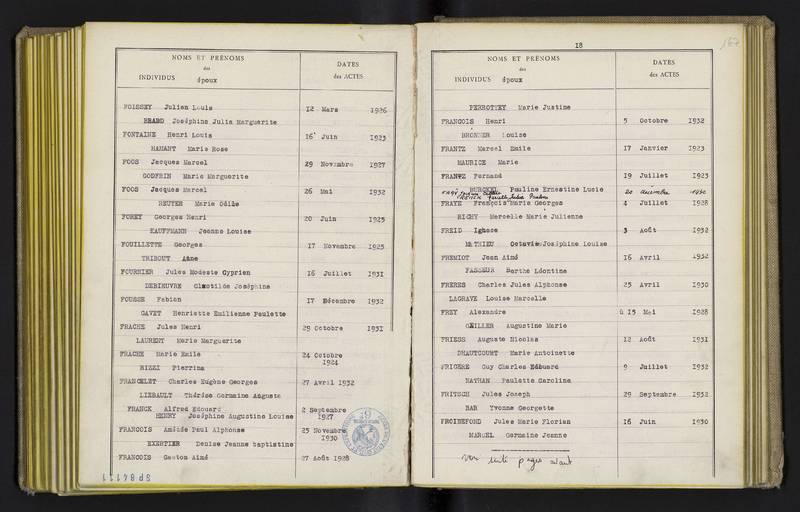 NOMS ET PRÉNOMS
des
INDIVIDUS époux
DATES
des ACTES
FOISSEY Julien Louis 12 Mars 1926
BRABO Joséphine Julia Marguerite
FONTAINE Henri Louis 16 Juin 1923
HAMANT Marie Rose
FOOS Jacques Marcel 29 Novembre 1927
GODFRIN Marie Marguerite
FOOS Jacques Marcel 26 Mai 1932
REUTER Marie Odile
FOREY Georges Henri 20 Juin 1925
KAUFFMANN Jeanne Louise
FOUILLETTE Georges 17 Novembre 1925
TRIBOUT Anne
FOURNIER Jules Modeste Cyprien 16 Juillet 1931
DEHIEUVRE Clotilde Joséphine
FOUSSE Fabien 17 Décembre 1932
GAVET Henriette Emilienne Paulette
FRACHE Jules Henri 29 Octobre 1931
LAURENT Marie Marguerite
FRACHE Marie Emile 24 Octobre 1924
RIZZI Pierrina
FRANCELET Charles Eugène Georges 27 Avril 1932
LIEBAULT Thérèse Germaine Augusta
FRANCK Alfred Edouard 2 Septembre 1927
HENRY Joséphine Augustine Louise
FRANCOIS Amédée Paul Alphonse 25 Novembre 1930
EXERTIER Denise Jeanne baptistine
FRANCOIS Gaston Aimé 27 Août 1928
18
167
NOMS ET PRÉNOMS
des
INDIVIDUS époux
DATES
des ACTES
PERROTTEY Marie Justine
FRANCOIS Henri 5 Octobre 1932
BRONNER Louise
FRANTZ Marcel Emile 17 Janvier 1923
MAURICE Marie
FRANTZ Fernand 19 Juillet 1923
BURCKEL Pauline Ernestine Lucie
20 décembre 1930
FRAYE François Marie Georges 4 Juillet 1928
RICHY Marcelle Marie Julienne
FREID Ignace 3 Août 1932
MATHIEU Octavie Joséphine Louise
FREMIOT Jean Aimé 16 Avril 1932
FASSEUR Berthe Léontine
FRERES Charles Jules Alphonse 25 Avril 1930
LAGRAVE Louise Marcelle
FREY Alexandre 15 Mai 1928
OEILLER Augustine Marie
FRIESS Auguste Nicolas 12 Août 1931
DHAUTCOURT Marie Antoinette
FRIGERE Guy Charles Edouard 9 Juillet 1932
NATHAN Paulette Caroline
FRITSCH Jules Joseph 29 Septembre 1932
BAR Yvonne Georgette
FROIDEFOND Jules Marie Florian 16 Juin 1930
MARCEL Germaine Jeanne
voir suite pages avant